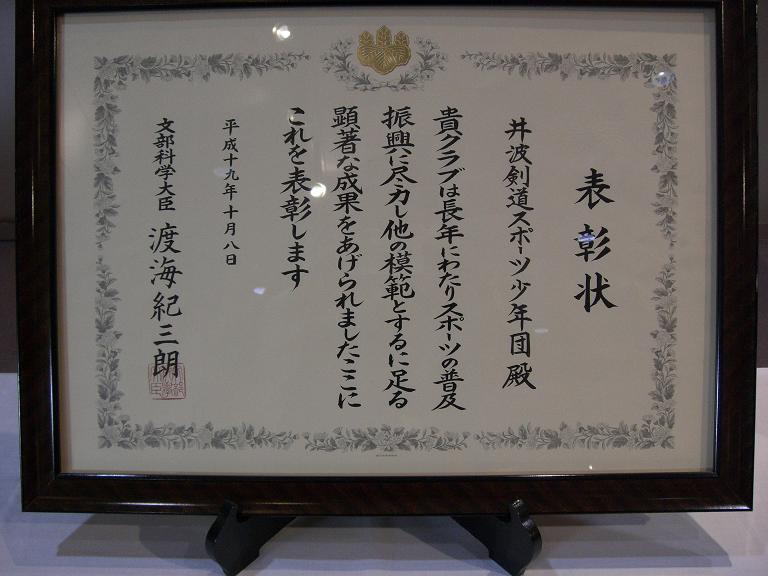 表彰状
井波剣道スポーツ少年団殿
貴クラブは長年にわたりスポーツの普及
振興に尽力し他の模範とするに足る
顕著な成果をあげられましたここに
これを表彰します
平成十九年十月八日
文部科学大臣 渡海紀三朗